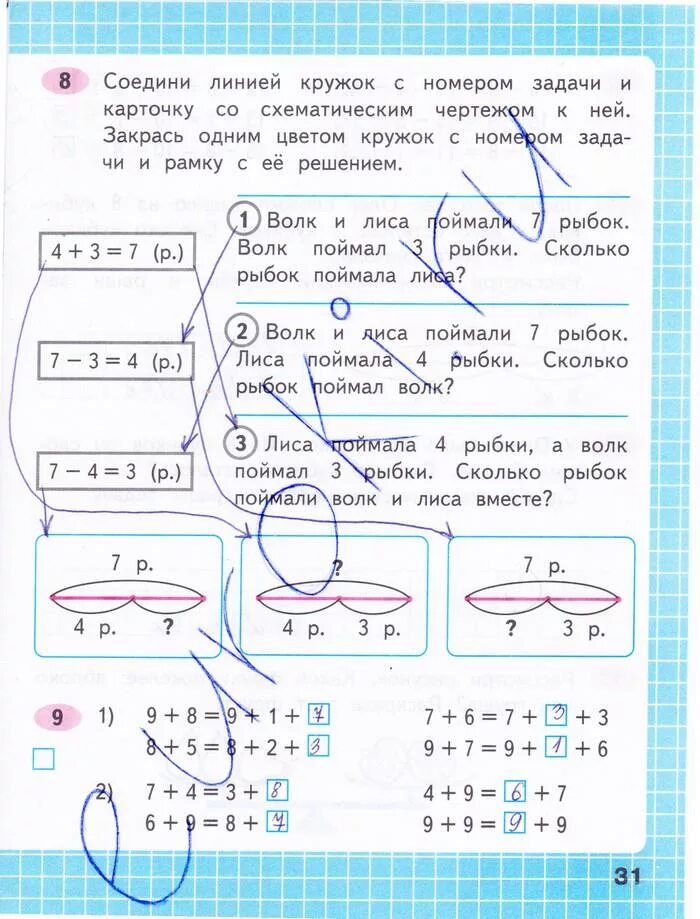 8 Соедини линией кружок с номером задачи и
карточку со схематическим чертежом к ней.
Закрась одним цветом кружок с номером зада-
чи и рамку с её решением.
4 + 3 = 7 (р.)
7 − 3 = 4 (р.)
7 − 4 = 3 (р.)
1 Волк и лиса поймали 7 рыбок.
Волк поймал 3 рыбки. Сколько
рыбок поймала лиса?
2 Волк и лиса поймали 7 рыбок.
Лиса поймала 4 рыбки. Сколько
рыбок поймал волк?
3 Лиса поймала 4 рыбки, а волк
поймал 3 рыбки. Сколько рыбок
поймали волк и лиса вместе?
7 р.
4 р. ?
?
4 р. 3 р.
7 р.
? 3 р.
9 1) 9 + 8 = 9 + 1 + 7
8 + 5 = 8 + 2 + 3
7 + 6 = 7 + 3 + 3
9 + 7 = 9 + 1 + 6
2) 7 + 4 = 3 + 8
6 + 9 = 8 + 7
4 + 9 = 6 + 7
9 + 9 = 9 + 9
31